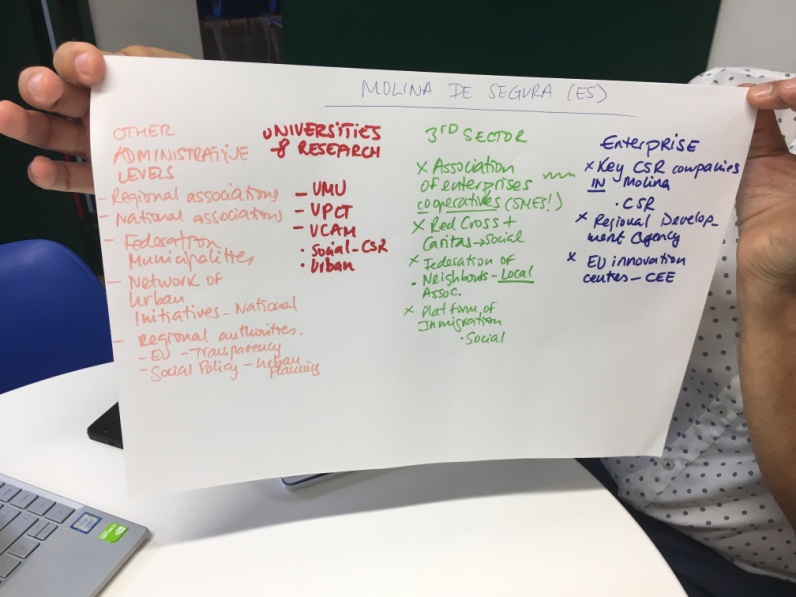 MOLINA DE SEGURA (ES)
OTHER
ADMINISTRATIVE
LEVELS
- Regional associations
- National associations
- Federation
Municipalities
- Network of
Urban
Initiatives - National
- Regional authorities.
- EU - Transparency
- Social Policy - Urban
Planning
UNIVERSITIES
& RESEARCH
- UMU
- UPCT
- UCAM
• Social - CSR
• Urban
3RD SECTOR
x Association
of enterprises
cooperatives (SMES!)
x Red Cross +
Caritas → social
x Federation of
• Neighbours - Local
Assoc.
x Platform of
Inmigration
• Social
ENTERPRISE
x Key CSR companies
IN Molina
• CSR
x Regional Develop-
ment Agency
x EU innovation
centes - CEE